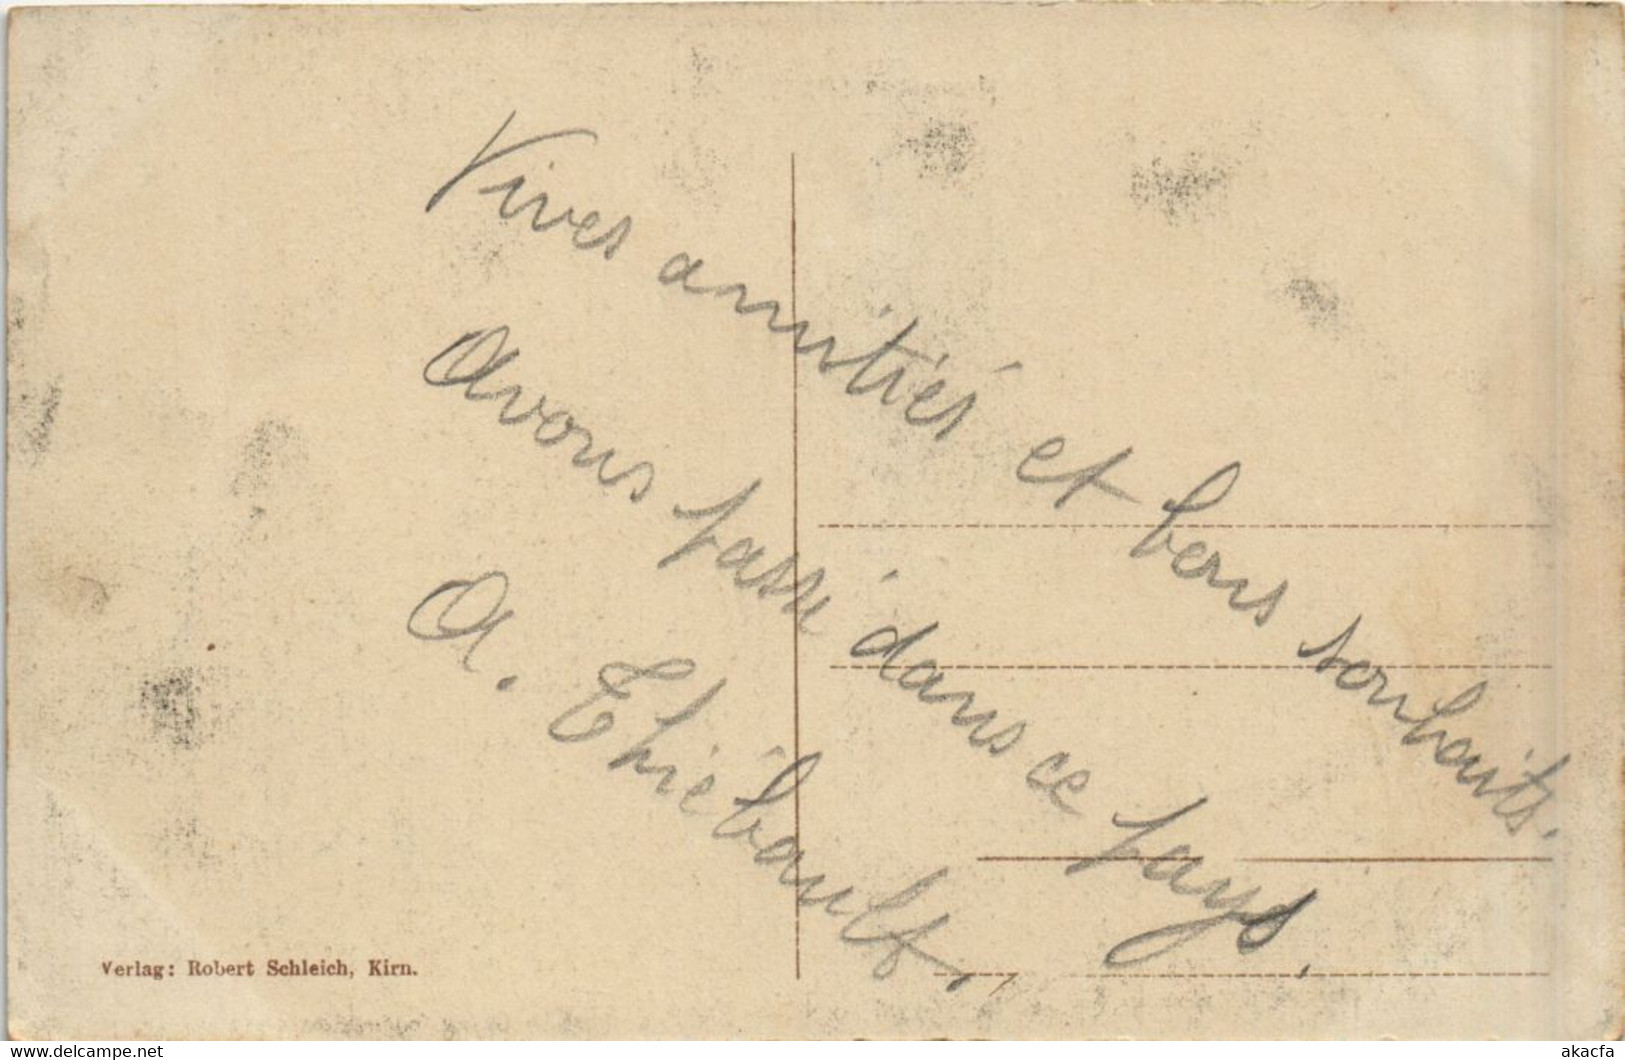 Vives amitiés et bons souhaits.
Avons passé dans ce pays.
A. Thiébault.
Verlag: Robert Schleich, Kirn.
www.delcampe.net
akacfa